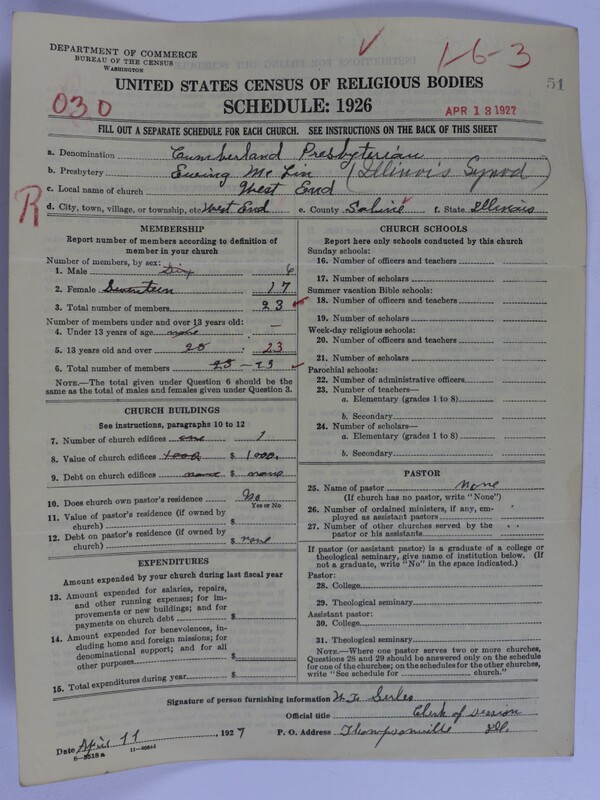 DEPARTMENT OF COMMERCE
BUREAU OF THE CENSUS
WASHINGTON
1-6-3
51
UNITED STATES CENSUS OF RELIGIOUS BODIES
SCHEDULE: 1926
030
APR 13 1927
FILL OUT A SEPARATE SCHEDULE FOR EACH CHURCH. SEE INSTRUCTIONS ON THE BACK OF THIS SHEET
a. Denomination Cumberland Presbyterian
b. Presbytery Ewing Mc Lin (Illinois Synod)
c. Local name of church West End
R
d. City, town, village, or township, etc West End e. County Saline f. State Illinois
MEMBERSHIP
Report number of members according to definition of member in your church
Number of members, by sex:
1. Male Six 6
2. Female Seventeen 17
3. Total number of members 23
Number of members under and over 13 years old:
4. Under 13 years of age none —
5. 13 years old and over 23
6. Total number of members 23
NOTE.—The total given under Question 6 should be the
same as the total of males and females given under Question 3.
CHURCH BUILDINGS
See instructions, paragraphs 10 to 12
7. Number of church edifices one 1
8. Value of church edifices 1000 $ 1000.
9. Debt on church edifices none $ none
10. Does church own pastor's residence No
Yes or No
11. Value of pastor's residence (if owned by
church) $
12. Debt on pastor's residence (if owned by
church) $ none
EXPENDITURES
Amount expended by your church during last fiscal year
13. Amount expended for salaries, repairs,
and other running expenses; for im-
provements or new buildings; and for
payments on church debt $
14. Amount expended for benevolences, in-
cluding home and foreign missions; for
denominational support; and for all
other purposes $
15. Total expenditures during year $
CHURCH SCHOOLS
Report here only schools conducted by this church
Sunday schools:
16. Number of officers and teachers
17. Number of scholars
Summer vacation Bible schools:
18. Number of officers and teachers
19. Number of scholars
Week-day religious schools:
20. Number of officers and teachers
21. Number of scholars
Parochial schools:
22. Number of administrative officers
23. Number of teachers—
a. Elementary (grades 1 to 8)
b. Secondary
24. Number of scholars—
a. Elementary (grades 1 to 8)
b. Secondary
PASTOR
25. Name of pastor none
(If church has no pastor, write "None")
26. Number of ordained ministers, if any, em-
ployed as assistant pastors
27. Number of other churches served by the
pastor or his assistants
If pastor (or assistant pastor) is a graduate of a college or
theological seminary, give name of institution below. (If
not a graduate, write "No" in the space indicated.)
Pastor:
28. College
29. Theological seminary
Assistant pastor:
30. College
31. Theological seminary
NOTE.—Where one pastor serves two or more churches,
Questions 28 and 29 should be answered only on the schedule
for one of the churches; on the schedules for the other churches,
write "See schedule for church."
Signature of person furnishing information
Official title Clerk of Session
Date April 11, 1927 P. O. Address Thompsonville Ill.
6-8518a